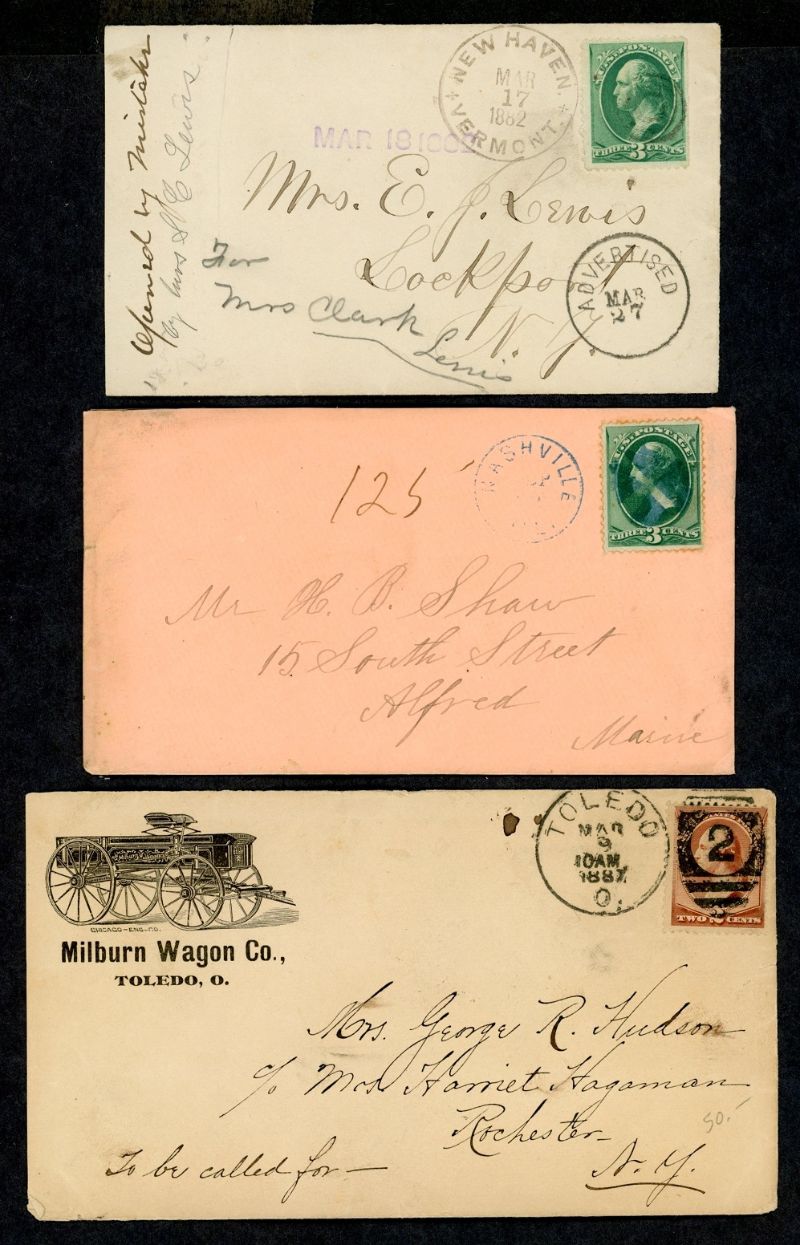 Opened by Mistake
by Mrs S C Lewis
NEW HAVEN
MAR
17
1882
VERMONT.
MAR 18 1882
U.S. POSTAGE
THREE 3 CENTS
Mrs. E. J. Lewis
Lockport
N. Y.
For
Mrs Clark
Lewis
ADVERTISED
MAR
27
125
NASHVILLE
U.S. POSTAGE
THREE 3 CENTS
Mr H. B. Shaw
15 South Street
Alfred
Maine
CHICAGO-ENG-CO.
Milburn Wagon Co.,
TOLEDO, O.
TOLEDO
MAR
9
10AM
1887
O.
2
TWO 2 CENTS
Mrs. George R. Hudson
c/o Mrs Harriet Hagaman
Rochester
N. Y.
50.-
To be called for —